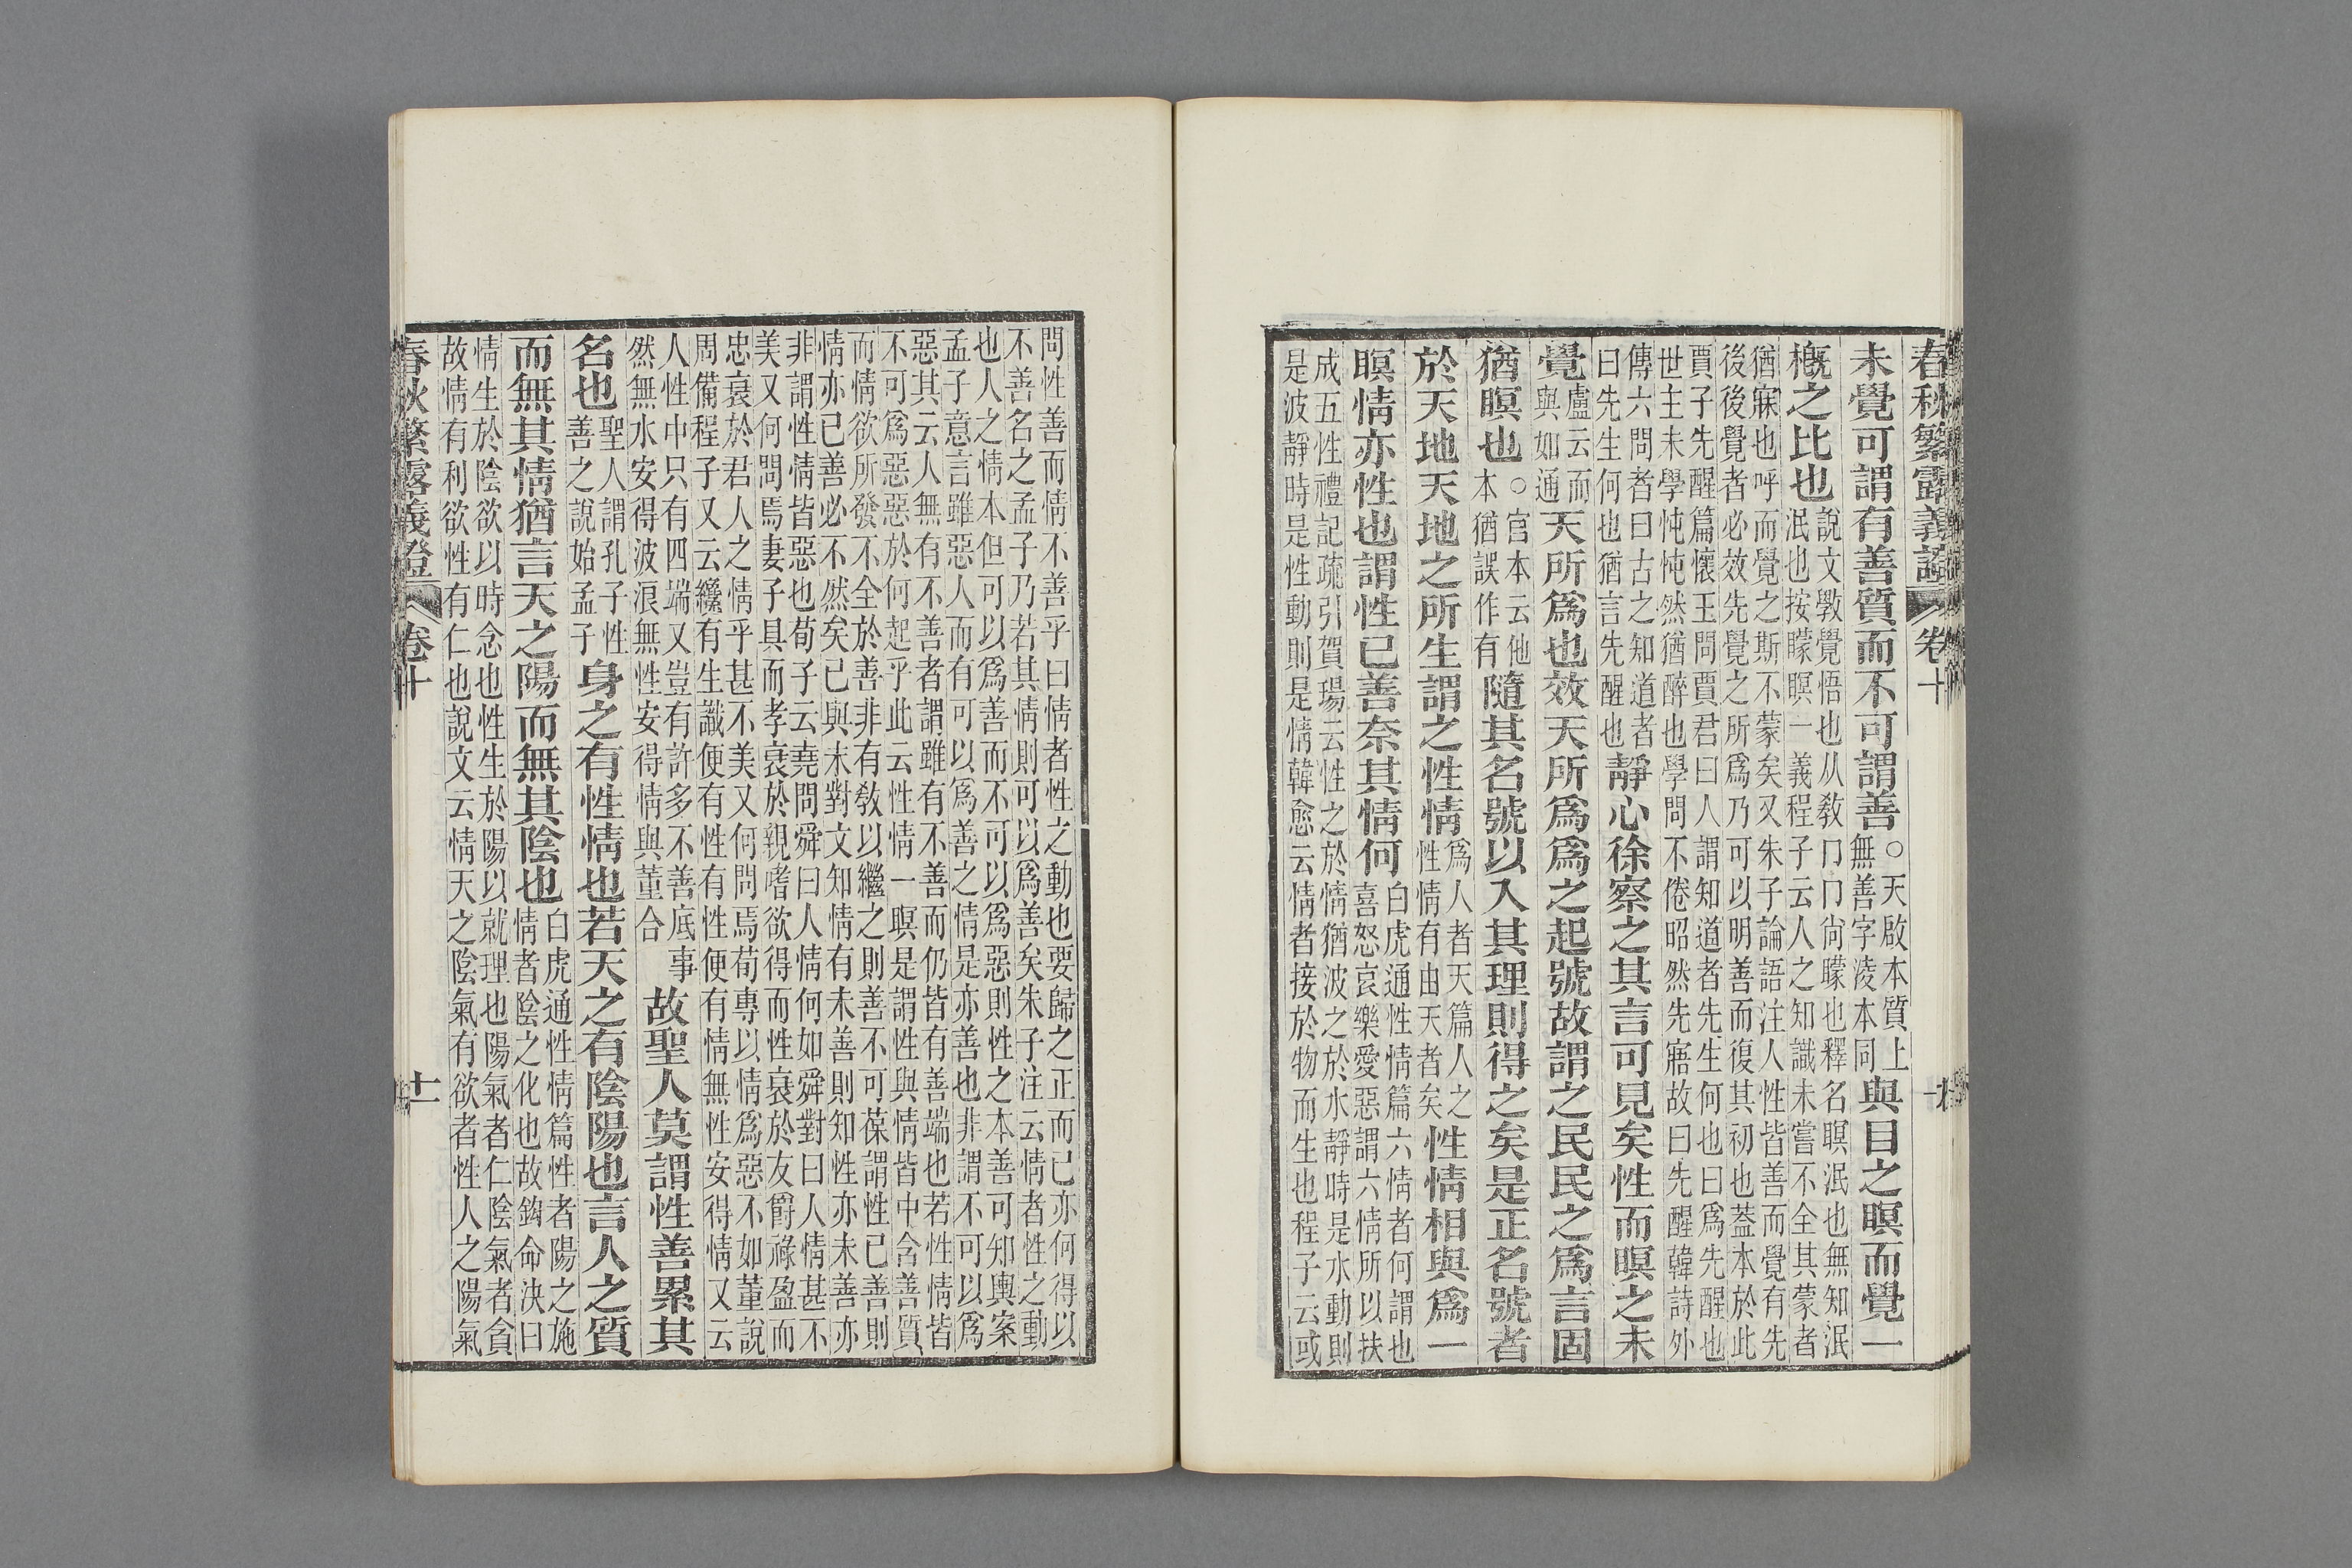 春秋繁露義證 卷十
未覺可謂有善質而不可謂善
○天啟本質上
無善字淩本同
與目之瞑而覺一
概之比也
說文斆覺悟也从敎冂冂尙矇也釋名瞑泯也無知泯
泯也按矇瞑一義程子云人之知識未嘗不全其蒙者
猶寐也呼而覺之斯不蒙矣又朱子論語注人性皆善而覺有先
後後覺者必效先覺之所爲乃可以明善而復其初也葢本於此
賈子先醒篇懷王問賈君曰人謂知道者先生何也曰爲先醒也
世主未學忳忳然猶醉也學問不倦昭然先寤故曰先醒韓詩外
傳六問者曰古之知道者
曰先生何也猶言先醒也
靜心徐察之其言可見矣性而瞑之未
覺
盧云而
與如通
天所爲也效天所爲爲之起號故謂之民民之爲言固
猶瞑也
○官本云他
本猶誤作有
隨其名號以入其理則得之矣是正名號者
於天地天地之所生謂之性情
爲人者天篇人之
性情有由天者矣
性情相與爲一
瞑情亦性也謂性已善奈其情何
白虎通性情篇六情者何謂也
喜怒哀樂愛惡謂六情所以扶
成五性禮記疏引賀瑒云性之於情猶波之於水靜時是水動則
是波靜時是性動則是情韓愈云情者接於物而生也程子云或
問性善而情不善乎曰情者性之動也要歸之正而已亦何得以
不善名之孟子乃若其情則可以爲善矣朱子注云情者性之動
也人之情本但可以爲善而不可以爲惡則性之本善可知輿案
孟子意言雖惡人而有可以爲善之情是亦善也非謂不可以爲
惡其云人無有不善者謂雖有不善而仍皆有善端也若性情皆
不可爲惡惡於何起乎此云性情一瞑是謂性與情皆中含善質
而情欲所發不全於善非有敎以繼之則善不可葆謂性已善則
情亦已善必不然矣已與未對文知情有未善則知性亦未善亦
非謂性情皆惡也荀子云堯問舜曰人情何如舜對曰人情甚不
美又何問焉妻子具而孝衰於親嗜欲得而性衰於友爵祿盈而
忠衰於君人之情乎甚不美又何問焉荀專以情爲惡不如董說
周備程子又云纔有生識便有性有性便有情無性安得情又云
人性中只有四端又豈有許多不善底事
然無水安得波浪無性安得情與董合
故聖人莫謂性善累其
名也
聖人謂孔子性
善之說始孟子
身之有性情也若天之有陰陽也言人之質
而無其情猶言天之陽而無其陰也
白虎通性情篇性者陽之施
情者陰之化也故鉤命決曰
情生於陰欲以時念也性生於陽以就理也陽氣者仁陰氣者貪
故情有利欲性有仁也說文云情天之陰氣有欲者性人之陽氣
春秋繁露義證 卷十 十一